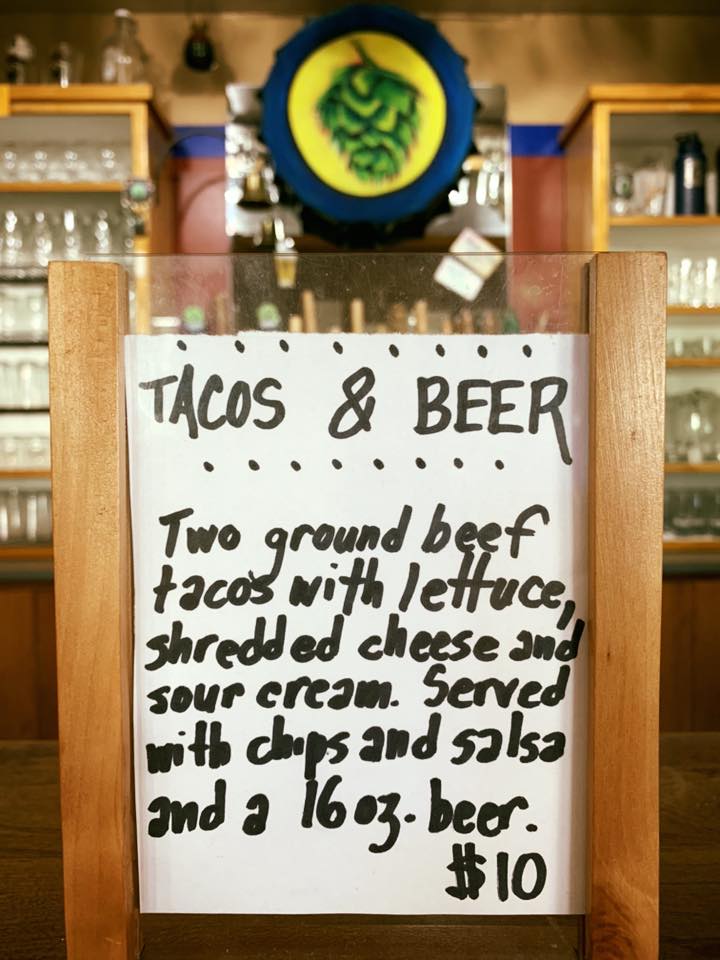 TACOS & BEER
Two ground beef
tacos with lettuce,
shredded cheese and
sour cream. Served
with chips and salsa
and a 16oz. beer.
$10